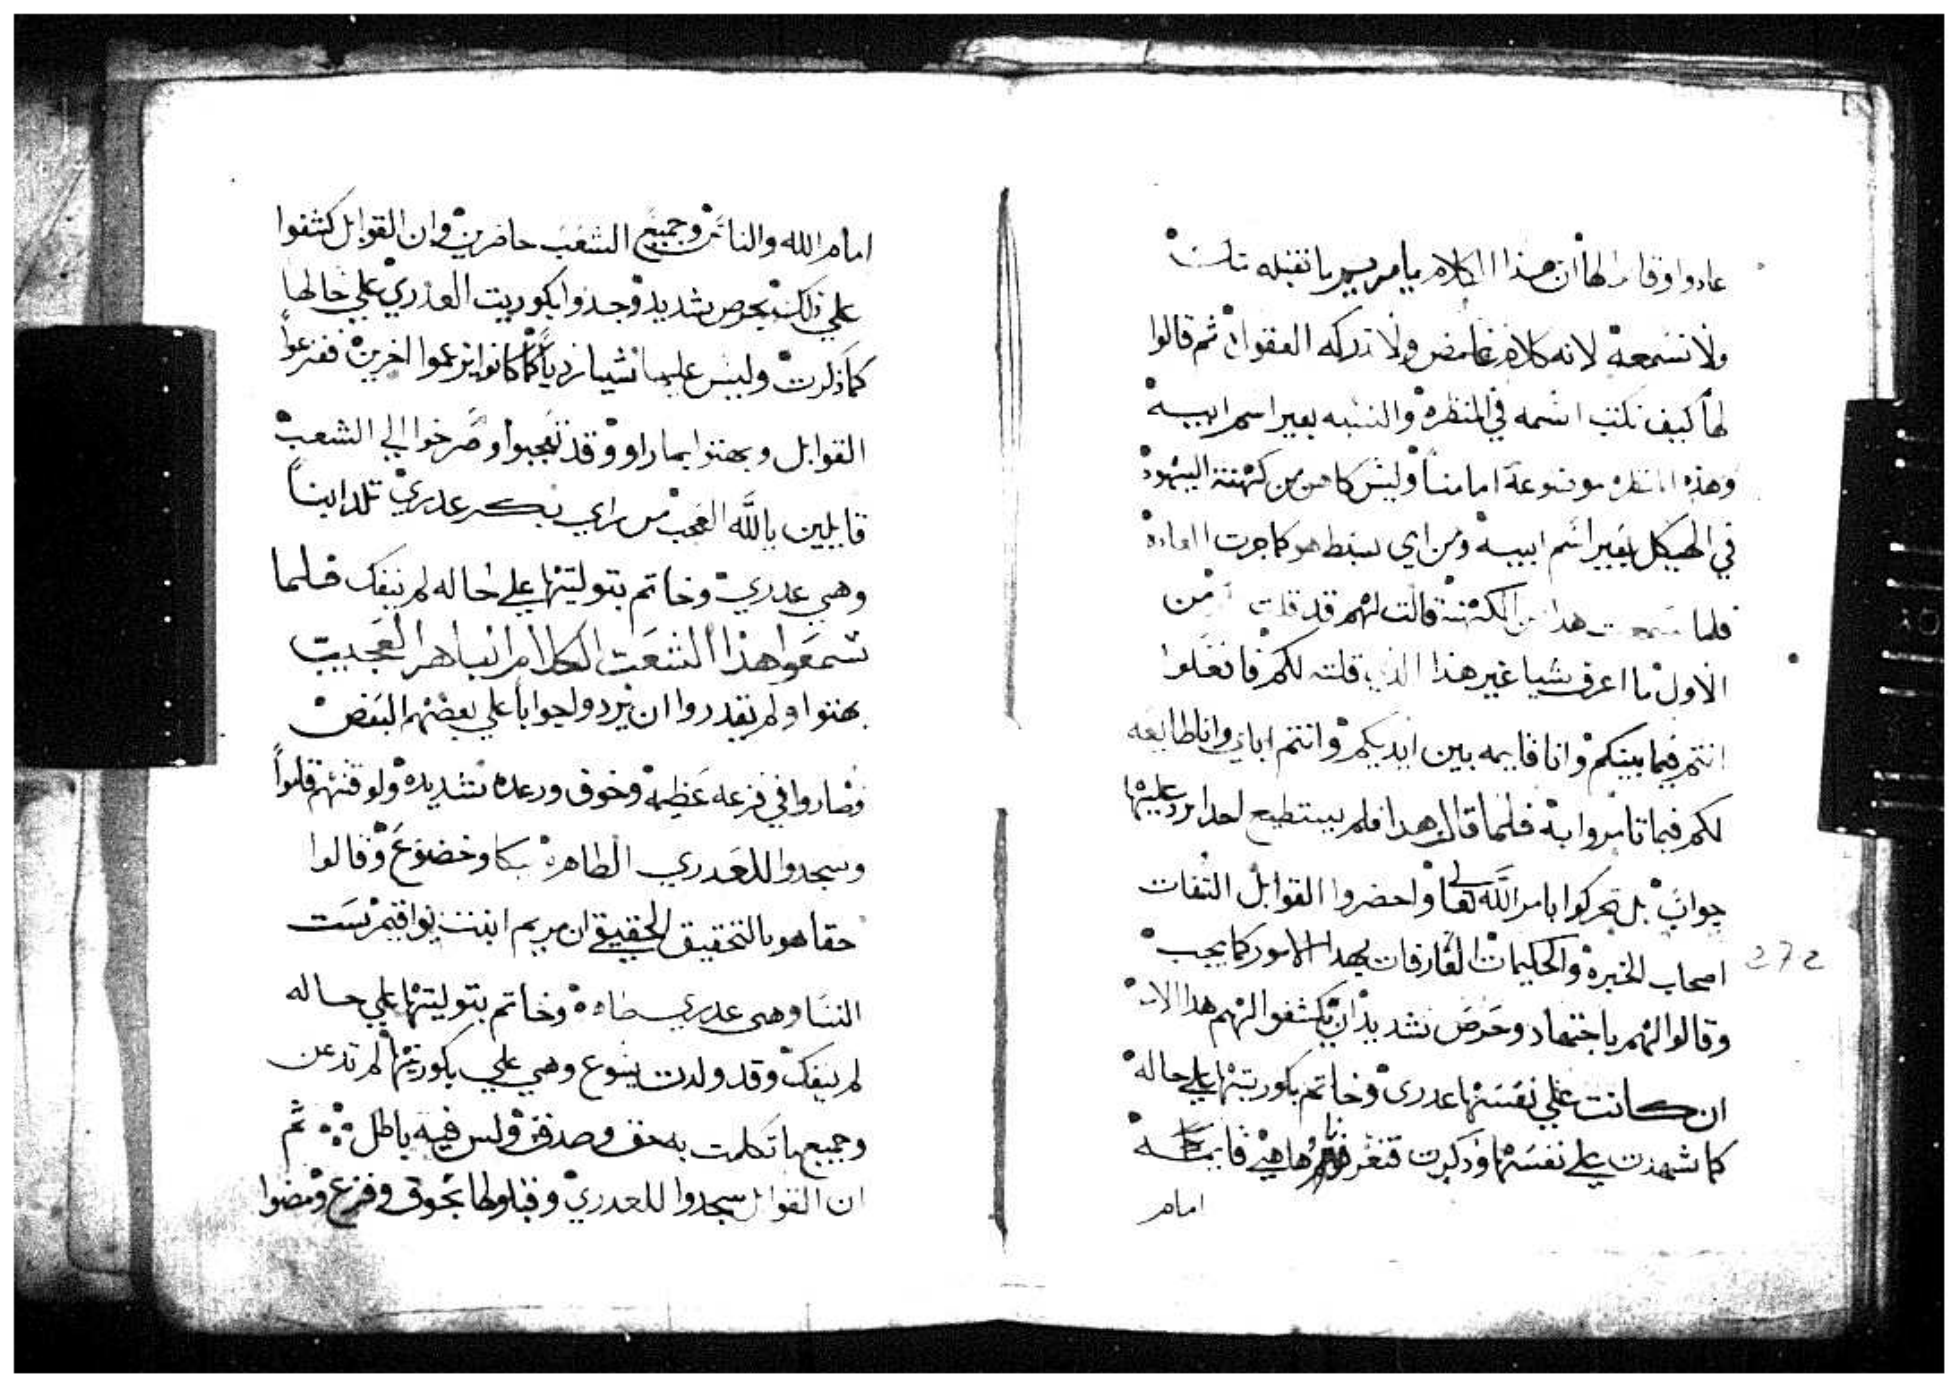 عادوا وقالوا لها ان هذا الكلام يا مريم ما نقبله منك
ولا نسمعه لانه كلام غامض ولا تدركه العقول ثم قالوا
لها كيف نكتب اسمه في المنظره والنسبه بغير اسم ابيه
وهذه المنظره موضوعة امامنا وليس كاهن من كهنة اليهود
في الهيكل بغير اسم ابيه ومن اي سبط هو كما جرت العاده
فلما سمعت هذا من الكهنة قالت لهم قد قلت من
الاول ما اعرف شيا غير هذا الذي قلته لكم فافعلوا
انتم فيما بينكم وانا قايمه بين ايديكم وانتم اباي وانا طايعه
لكم فيما تامروا به فلما قالت هدا فلم يستطيع احدا يرد عليها
جواب بل تحركوا بامر الله تعالي واحضروا القوابل الثقات
اصحاب الخبره والحكيمات العارفات بهدا الامور كما يجب
272
وقالوا لهم باجتهاد وحرص شديد ان يكشفوا لهم هدا الامر
ان كانت علي نفسها عدرى وخاتم بكوريتها علي حاله
كما شهدت علي نفسها وذكرت فها هي قايمة
امام
امام الله والناس وجميع الشعب حاضرين وان القوابل كشفوا
علي ذلك بحرص شديد وجدوا بكوريت العذري علي حالها
كما ذكرت وليس عليها شيا رديا كما كانوا يزعموا اخرين ففزعوا
القوابل وبهتوا بما راوو وقد تعجبوا وصرخوا الي الشعب
قايلين بالله العجب من راي بكر عدري تلد ابنا
وهي عدري وخاتم بتوليتها علي حاله لم ينفك فلما
سمعوا هذا الشعب الكلام الباهر العجيب
بهتوا ولم يقدروا ان يردو لجوابا علي بعضهم البعض
وصاروا في فزعه عظيمه وخوف ورعده شديده ولوقتهم قاموا
وسجدوا للعدري الطاهره ببكا وخضوع وقالوا
حقا هو بالتحقيق الحقيقي ان مريم ابنت يواقيم ست
النسا وهى عدري طاهره وخاتم بتوليتها علي حاله
لم ينفك وقد ولدت يسوع وهي علي بكوريتها لم تدعن
وجميع ما تكلمت به حق وصدق وليس فيه باطل ثم
ان القوابل سجدوا للعدري وقبلوها بخوف وفزع ومضوا